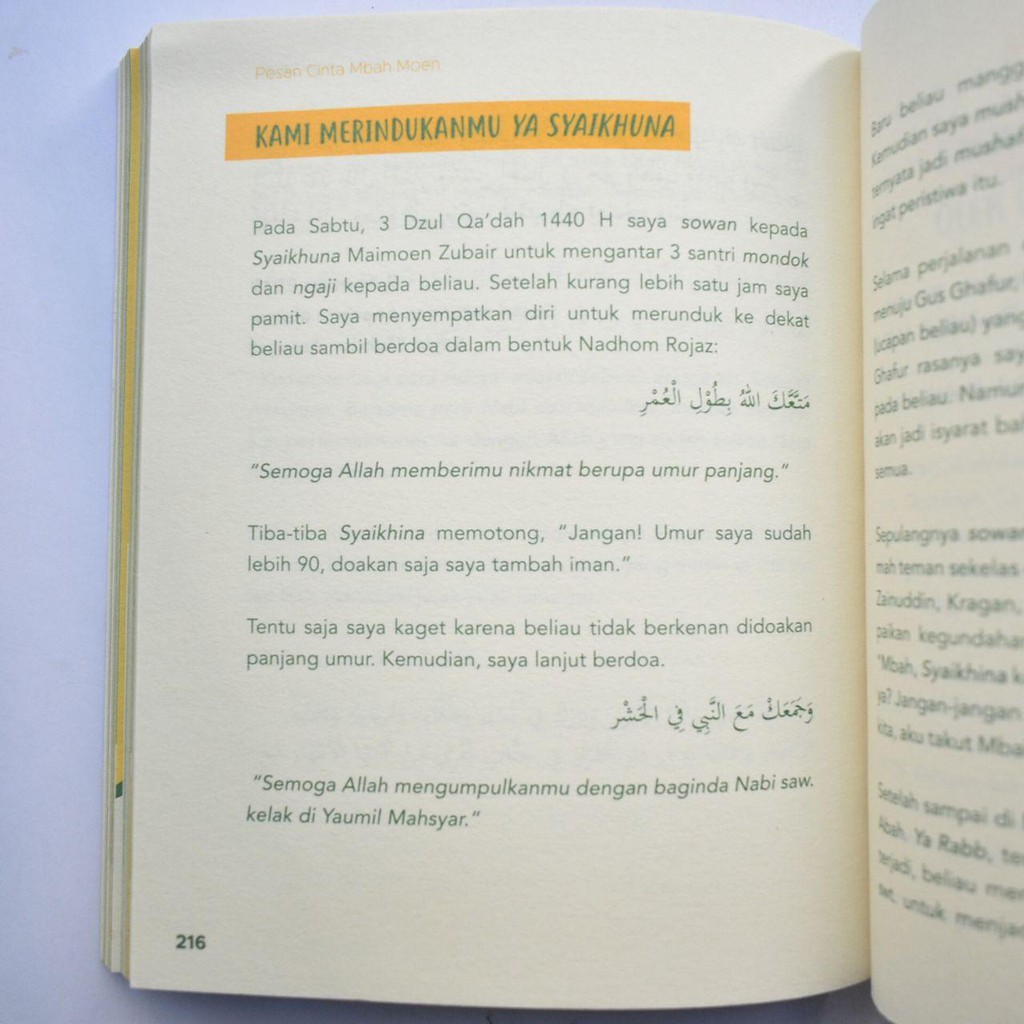 Pesan Cinta Mbah Moen
KAMI MERINDUKANMU YA SYAIKHUNA
Pada Sabtu, 3 Dzul Qa'dah 1440 H saya sowan kepada
Syaikhuna Maimoen Zubair untuk mengantar 3 santri mondok
dan ngaji kepada beliau. Setelah kurang lebih satu jam saya
pamit. Saya menyempatkan diri untuk merunduk ke dekat
beliau sambil berdoa dalam bentuk Nadhom Rojaz:
مَتَّعَكَ اللهُ بِطُوْلِ الْعُمْرِ
"Semoga Allah memberimu nikmat berupa umur panjang."
Tiba-tiba Syaikhina memotong, "Jangan! Umur saya sudah
lebih 90, doakan saja saya tambah iman."
Tentu saja saya kaget karena beliau tidak berkenan didoakan
panjang umur. Kemudian, saya lanjut berdoa.
وَجَمَعَكْ مَعَ النَّبِي فِي الْحَشْر
"Semoga Allah mengumpulkanmu dengan baginda Nabi saw.
kelak di Yaumil Mahsyar."
216
Baru beliau mangg
Kemudian saya mush
ternyata jadi mushaf
ingat peristiwa itu.
Selama perjalanan
menuju Gus Ghafur,
(ucapan beliau) yang
Ghafur rasanya say
pada beliau. Namun
akan jadi isyarat bal
semua.
Sepulangnya sowan
mah teman sekelas
Zainuddin, Kragan,
paikan kegundahan
"Mbah, Syaikhina k
ya? Jangan-jangan
kita, aku takut Mba
Setelah sampai di
Abah. Ya Rabb, te
terjadi, beliau me
swt, untuk menja